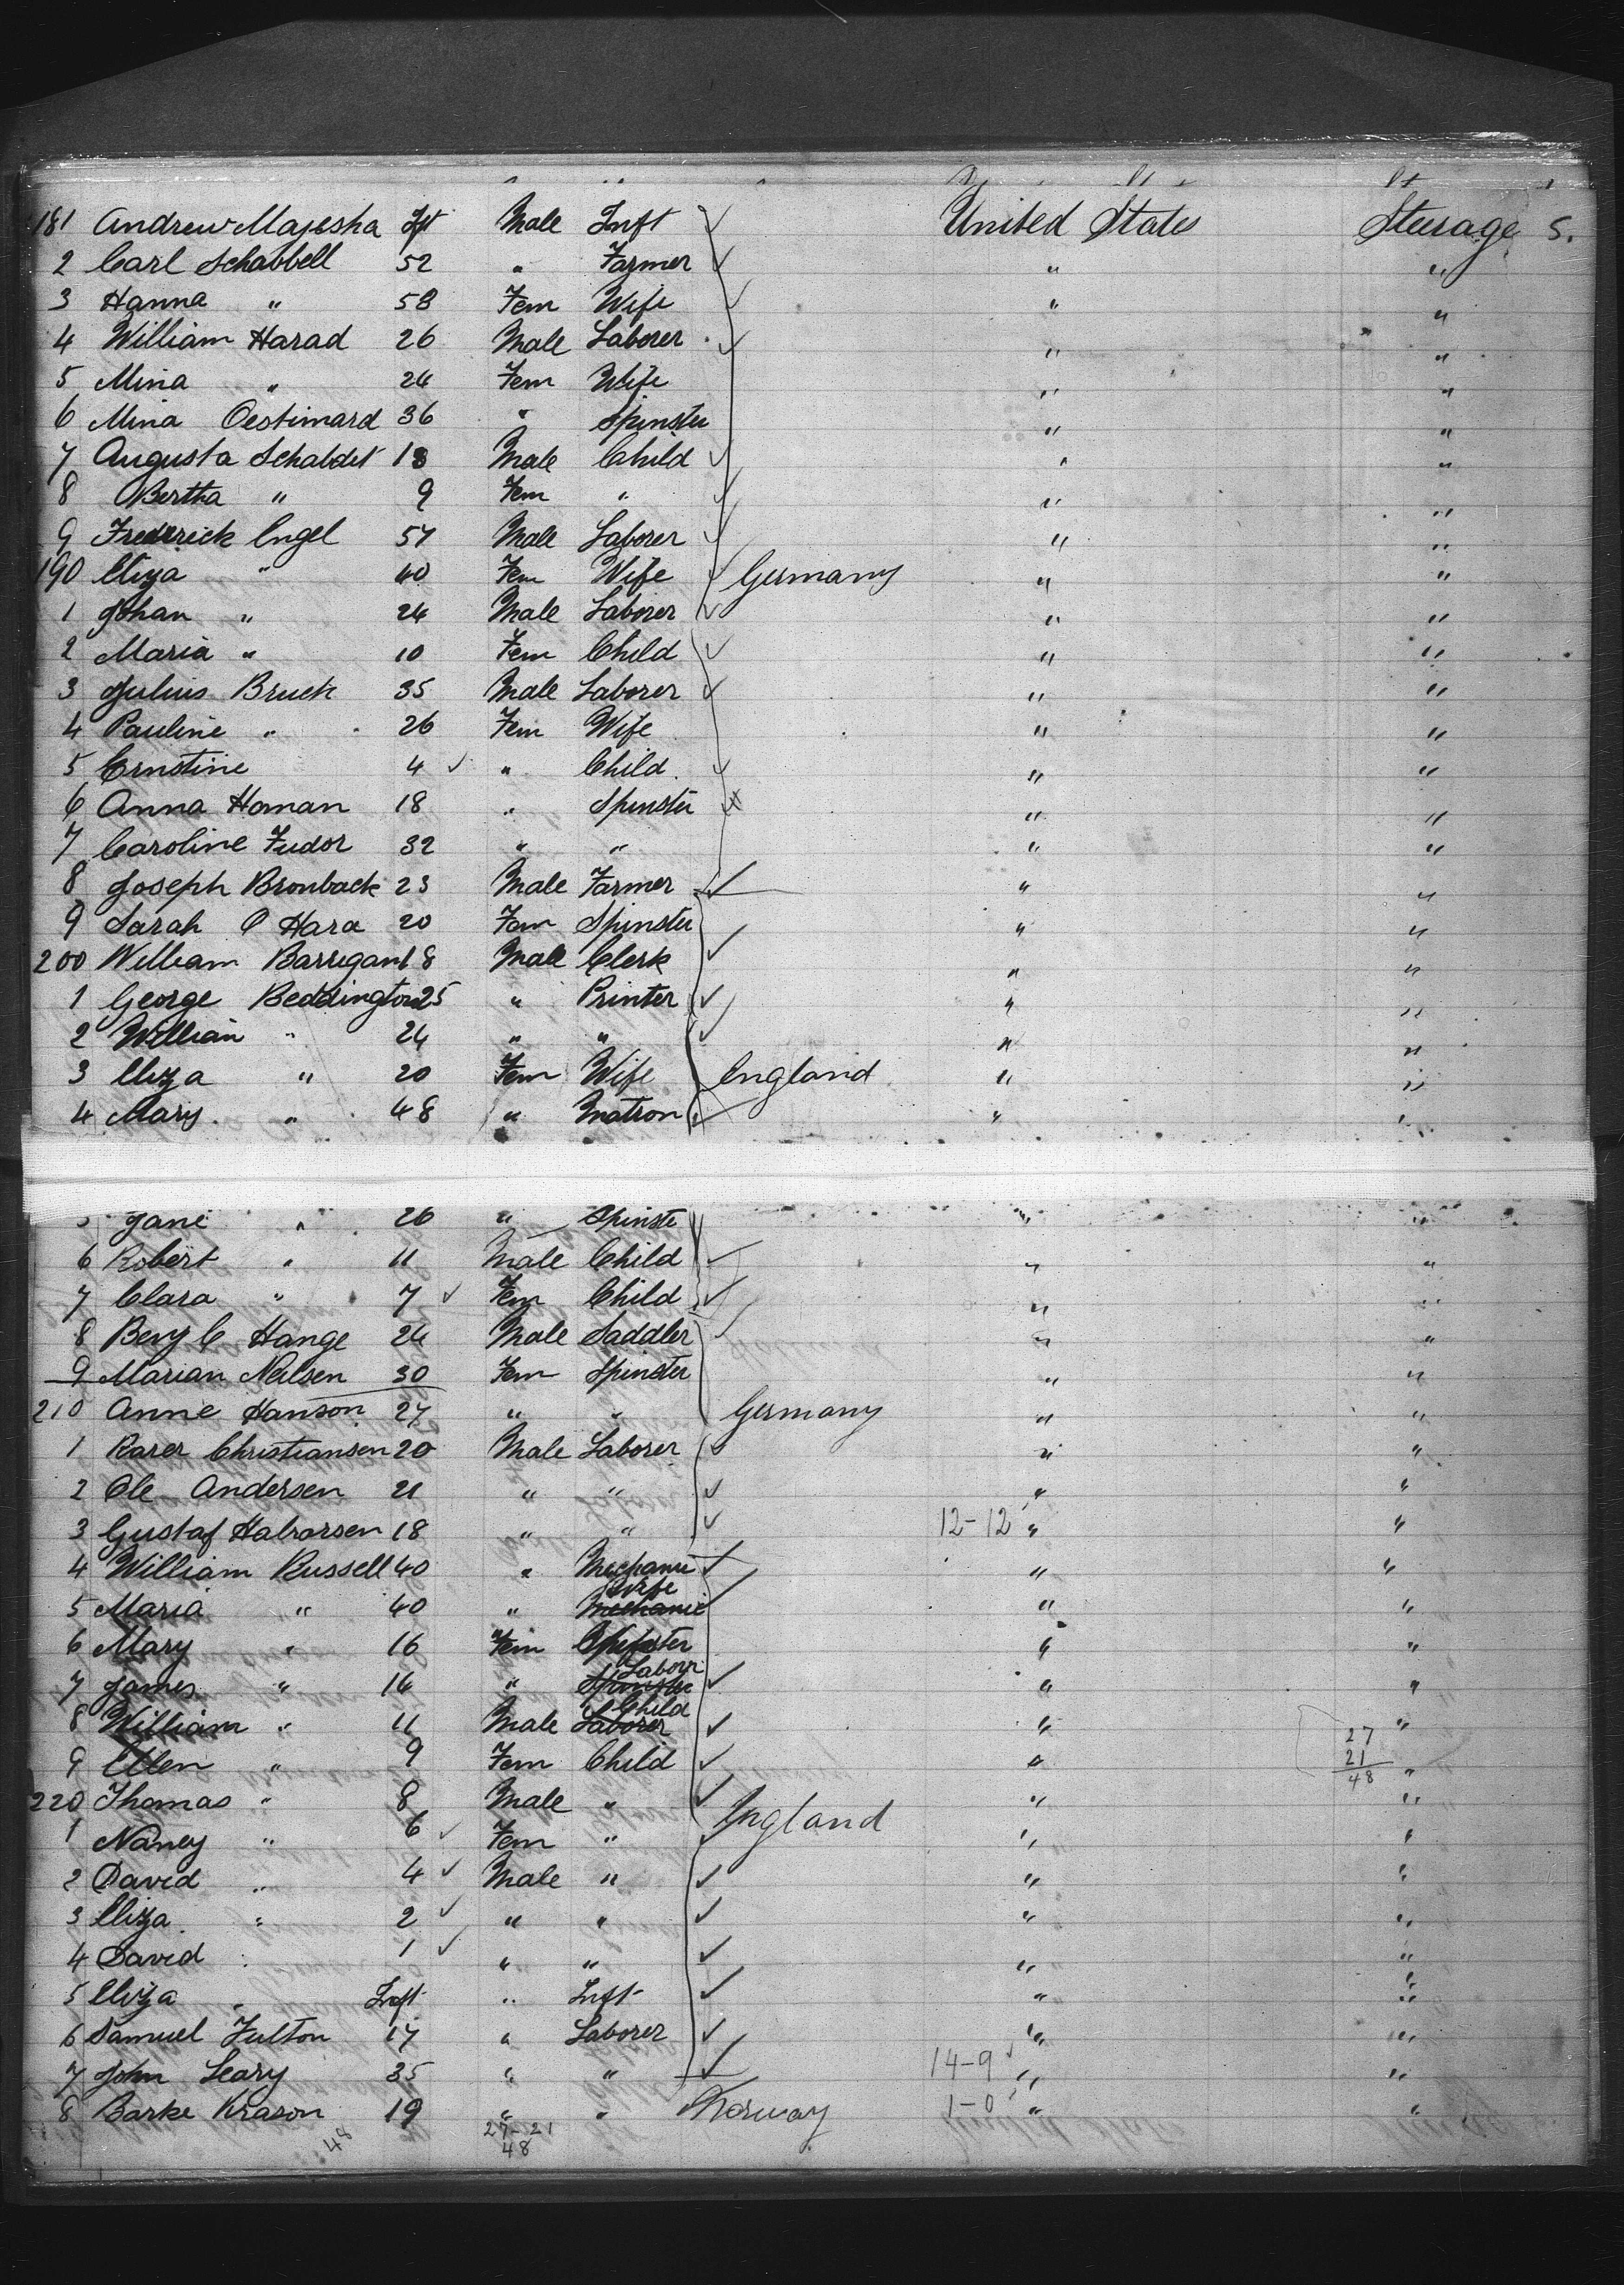 181 Andrew Majesha Inft Male Inft United States Steerage S.
2 Carl Schabbell 52 " Farmer " "
3 Hanna " 58 Fem Wife " "
4 William Harad 26 Male Laborer " "
5 Mina " 24 Fem Wife " "
6 Mina Oestimard 36 " Spinster " "
7 Augusta Schaldet 18 Male Child " "
8 Bertha " 9 Fem " " "
9 Frederick Engel 57 Male Laborer " "
190 Eliza " 40 Fem Wife Germany " "
1 Johan " 24 Male Laborer " "
2 Maria " 10 Fem Child " "
3 Julius Bruck 35 Male Laborer " "
4 Pauline " 26 Fem Wife " "
5 Ernstine 4 " Child " "
6 Anna Homan 18 " Spinster " "
7 Caroline Fudor 32 " " " "
8 Joseph Bronback 23 Male Farmer " "
9 Sarah O Hara 20 Fem Spinster " "
200 William Barrigan 18 Male Clerk " "
1 George Beddington 25 " Printer " "
2 William " 24 " " " "
3 Eliza " 20 Fem Wife England " "
4 Mary " 48 " Matron " "
5 Jane " 26 " Spinste " "
6 Robert " 11 Male Child " "
7 Clara " 7 Fem Child " "
8 Benj C Hange 24 Male Saddler " "
9 Marian Neilsen 30 Fem Spinster " "
210 Anne Hanson 27 " " Germany " "
1 Karer Christiansen 20 Male Laborer " "
2 Ole Andersen 21 " " " "
3 Gustaf Halvarsen 18 " " 12-12 " "
4 William Russell 40 " Mechanic " "
5 Maria " 40 " Mechanic Wife " "
6 Mary " 16 Fem Spinster " "
7 James " 14 " Spinster Laborer " "
8 William " 11 Male Laborer Child " "
9 Ellen " 9 Fem Child " 27 21 48 "
220 Thomas " 8 Male " England " "
1 Nancy " 6 Fem " " "
2 David " 4 Male " " "
3 Eliza " 2 " " " "
4 David " 1 " " " "
5 Eliza " Inft " Inft " "
6 Samuel Fulton 17 " Laborer " "
7 John Leary 35 " " 14-9 " "
8 Barke Krason 19 " " Norway 1-0 " "
48 27-21
48